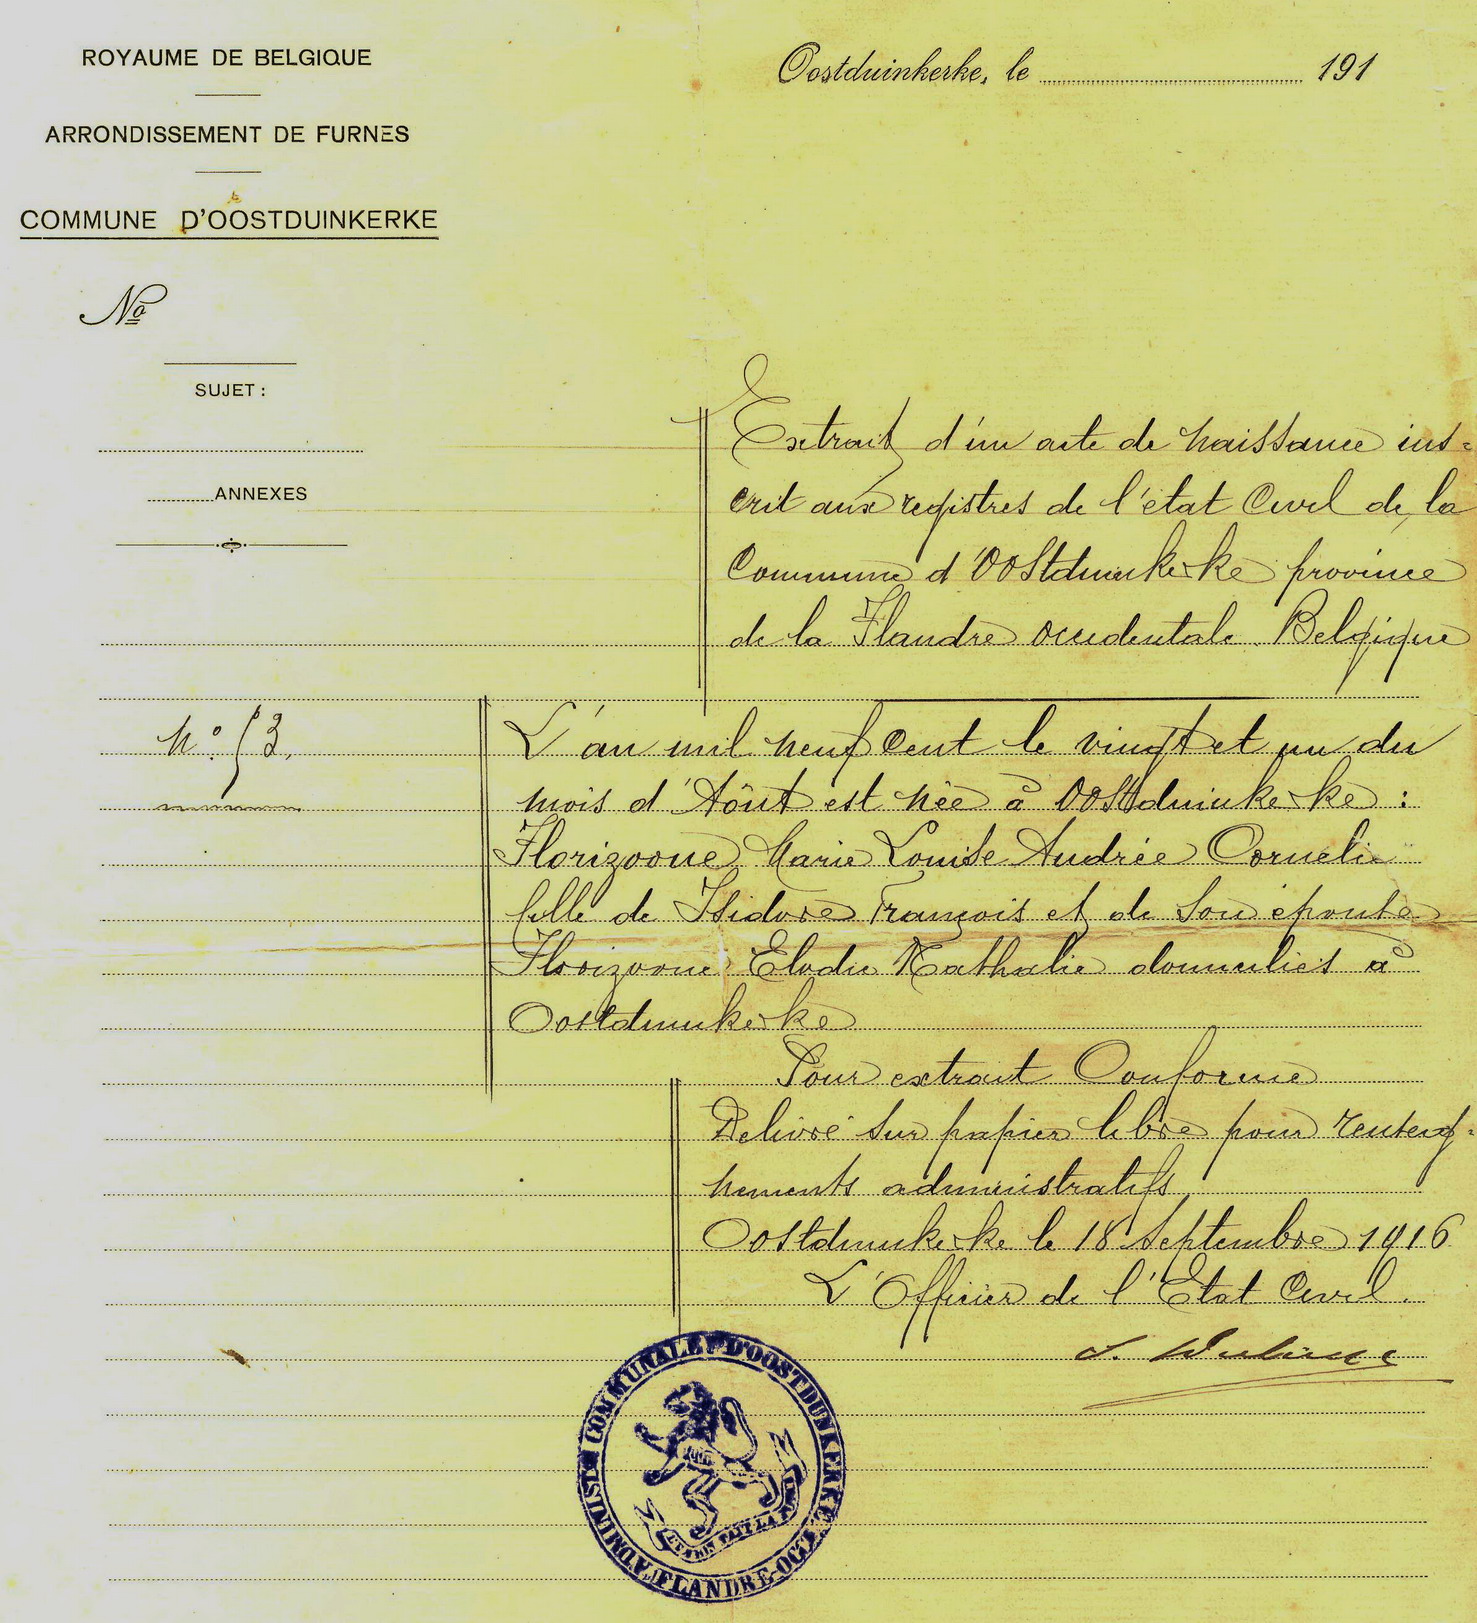 ROYAUME DE BELGIQUE
ARRONDISSEMENT DE FURNES
COMMUNE D'OOSTDUINKERKE
Nº
SUJET :
ANNEXES
Oostduinkerke, le 191
Extrait d'un acte de naissance ins=
crit aux registres de l'état Civil de la
Commune d'Oostduinkerke province
de la Flandre occidentale. Belgique
Nº 53.
L'an mil neuf cent le vingt et un du
mois d'Aôut est née à Oostduinkerke :
Florizoone Marie Louise Andrée Cornelie
fille de Isidore François et de son épouse
Florizoone Elodie Nathalie domiciliés à
Oostduinkerke
Pour extrait Conforme
Delivré sur papier libre pour renseig=
nements administratifs
Oostduinkerke le 18 Septembre 1916
L'Officier de l'Etat Civil.
ADMINIST. COMMUNALE D'OOSTDUNKERKE
FLANDRE-OCC.
L'UNION FAIT LA FORCE